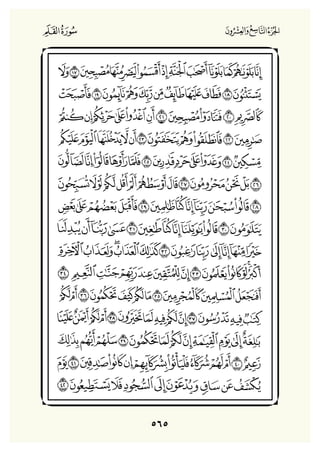 الجزء التاسع والعشرون سورة القلم
إِنَّا بَلَوْنَٰهُمْ كَمَا بَلَوْنَآ أَصْحَٰبَ ٱلْجَنَّةِ إِذْ أَقْسَمُوا۟ لَيَصْرِمُنَّهَا مُصْبِحِينَ ١٧ وَلَا
يَسْتَثْنُونَ ١٨ فَطَافَ عَلَيْهَا طَآئِفٌ مِّن رَّبِّكَ وَهُمْ نَآئِمُونَ ١٩ فَأَصْبَحَتْ
كَٱلصَّرِيمِ ٢٠ فَتَنَادَوْا۟ مُصْبِحِينَ ٢١ أَنِ ٱغْدُوا۟ عَلَىٰ حَرْثِكُمْ إِن كُنتُمْ
صَٰرِمِينَ ٢٢ فَٱنطَلَقُوا۟ وَهُمْ يَتَخَٰفَتُونَ ٢٣ أَن لَّا يَدْخُلَنَّهَا ٱلْيَوْمَ عَلَيْكُم
مِّسْكِينٌ ٢٤ وَغَدَوْا۟ عَلَىٰ حَرْدٍ قَٰدِرِينَ ٢٥ فَلَمَّا رَأَوْهَا قَالُوٓا۟ إِنَّا لَضَآلُّونَ
٢٦ بَلْ نَحْنُ مَحْرُومُونَ ٢٧ قَالَ أَوْسَطُهُمْ أَلَمْ أَقُل لَّكُمْ لَوْلَا تُسَبِّحُونَ
٢٨ قَالُوا۟ سُبْحَٰنَ رَبِّنَآ إِنَّا كُنَّا ظَٰلِمِينَ ٢٩ فَأَقْبَلَ بَعْضُهُمْ عَلَىٰ بَعْضٍ
يَتَلَٰوَمُونَ ٣٠ قَالُوا۟ يَٰوَيْلَنَآ إِنَّا كُنَّا طَٰغِينَ ٣١ عَسَىٰ رَبُّنَآ أَن يُبْدِلَنَا
خَيْرًا مِّنْهَآ إِنَّآ إِلَىٰ رَبِّنَا رَٰغِبُونَ ٣٢ كَذَٰلِكَ ٱلْعَذَابُ ۖ وَلَعَذَابُ ٱلْءَاخِرَةِ
أَكْبَرُ ۚ لَوْ كَانُوا۟ يَعْلَمُونَ ٣٣ إِنَّ لِلْمُتَّقِينَ عِندَ رَبِّهِمْ جَنَّٰتِ ٱلنَّعِيمِ ٣٤
أَفَنَجْعَلُ ٱلْمُسْلِمِينَ كَٱلْمُجْرِمِينَ ٣٥ مَا لَكُمْ كَيْفَ تَحْكُمُونَ ٣٦ أَمْ لَكُمْ
كِتَٰبٌ فِيهِ تَدْرُسُونَ ٣٧ إِنَّ لَكُمْ فِيهِ لَمَا تَخَيَّرُونَ ٣٨ أَمْ لَكُمْ أَيْمَٰنٌ عَلَيْنَا
بَٰلِغَةٌ إِلَىٰ يَوْمِ ٱلْقِيَٰمَةِ ۙ إِنَّ لَكُمْ لَمَا تَحْكُمُونَ ٣٩ سَلْهُمْ أَيُّهُم بِذَٰلِكَ
زَعِيمٌ ٤٠ أَمْ لَهُمْ شُرَكَآءُ فَلْيَأْتُوا۟ بِشُرَكَآئِهِمْ إِن كَانُوا۟ صَٰدِقِينَ ٤١ يَوْمَ
يُكْشَفُ عَن سَاقٍ وَيُدْعَوْنَ إِلَى ٱلسُّجُودِ فَلَا يَسْتَطِيعُونَ ٤٢
٥٦٥